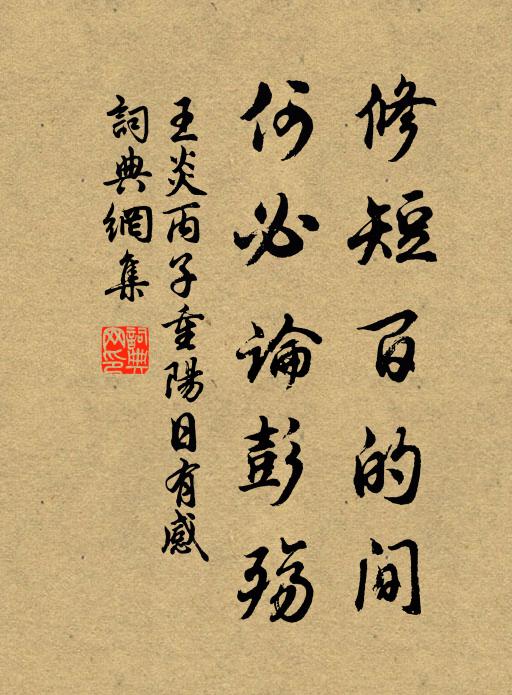 修短百的間
何必論彭殤
王炎丙子重陽日有感
詞典網集
詞典網印